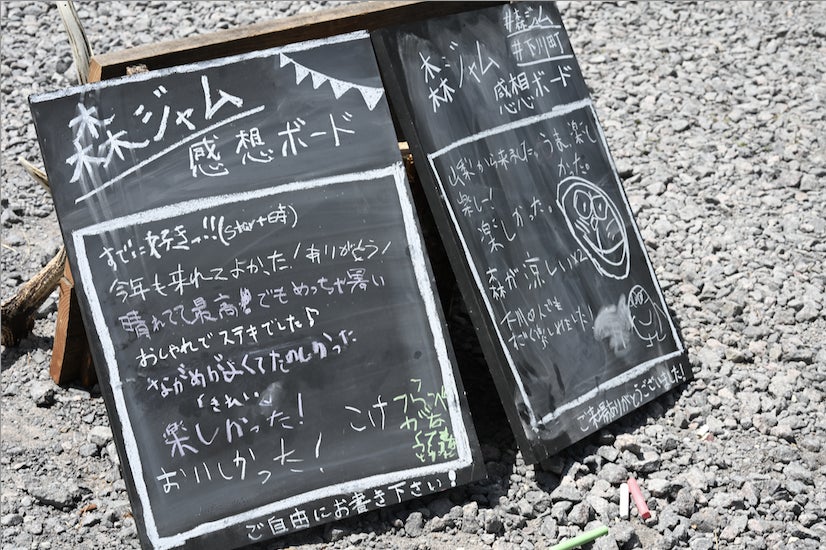 森ジャム
感想ボード
すでに好きっ!!(start時)
今年も来れてよかった!ありがとう!
晴れてて最高 でもめっちゃ暑い
おしゃれでステキでした♪
ながめがよくてたのしかった
きれい
楽しかった!
おいしかった!
こけ
ご自由にお書き下さい!
#森ジャム
#下川町
森ジャム
感想ボード
山梨から来ました。
楽しかった。
楽しー!
楽しかった。
森が涼しい
ご来場ありがとうございました!